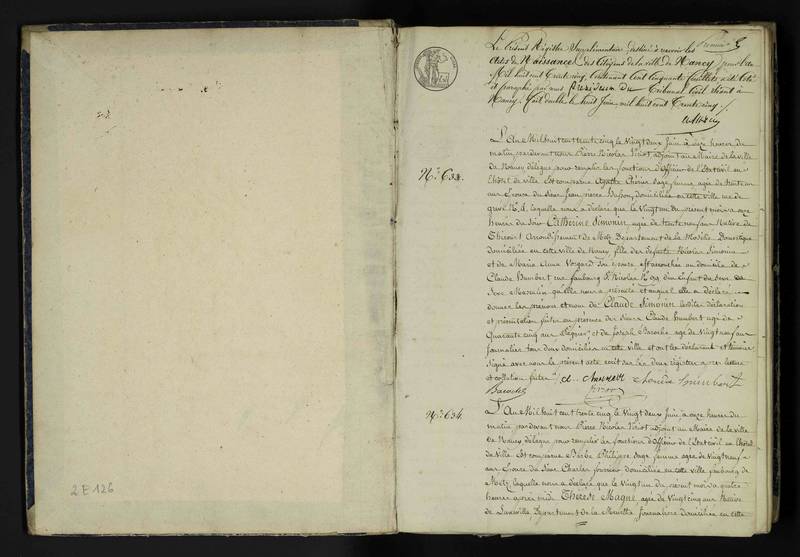 2 E 126
Premier
Le Présent Registre Supplémentaire, destiné à recevoir les
Actes de Naissance des Citoyens de la ville de Nancy, pendant
Mil huit cent Trente cinq, Contenant Cent Cinquante feuillets a été Coté
et paraphé par nous Président Du Tribunal Civil séant à
Nancy. fait double le huit Juin mil huit cent Trente cinq.
N.° 633.
L'An Mil huit cent trente cinq le Vingt deux Juin à heures du
matin, pardevant nous Pierre Nicolas adjoint au Maire de la ville
de Nancy délégué pour remplir les fonctions d'Officier de l'Etat civil en
l'hôtel de ville Est comparue Agathe Sage femme, agée de trente
ans Epouse du Sieur Jean pierre domiciliée en cette ville rue de
grève N.° laquelle nous a déclaré que le Vingt un du présent mois à onze
heures du soir Catherine Simonin agée de trente neuf ans Native de
Arrondissement de Metz Département de la Moselle Domestique
domiciliée en cette ville de Nancy fille des défunts Nicolas Simonin
et de Marie Anne est accouchée au domicile de
Claude Humbert rue faubourg S.t Nicolas N.° d'un Enfant du sexe
Sexe Masculin qu'elle nous a présenté et auquel elle a déclaré
donner les prénom et nom de Claude Simonin lesdites déclaration
et présentation faites en présence des Sieurs Claude Humbert agé de
Quarante cinq ans et de Joseph Baroche agé de Vingt neuf ans
journalier tous deux domiciliés en cette ville et ont les déclarant et témoins
signé avec nous le présent acte écrit sur les deux registres après lecture
et collation faites
Humbert
Baroche
N.° 634.
L'An Mil huit cent trente cinq le Vingt deux Juin à onze heures du
matin, pardevant nous Pierre Nicolas adjoint au Maire de la ville
de Nancy délégué pour remplir les fonctions d'Officier de l'Etat civil en l'hôtel
de Ville Est comparue Barbe Philippe Sage femme agée de Vingt neuf
ans Epouse du Sieur Charles domiciliée en cette ville faubourg de
Metz, laquelle nous a déclaré que le Vingt un du présent mois à quatre
heures après midi Thérèse Magne agée de Vingt cinq ans Native
de Lunéville, Département de la Meurthe journalière domiciliée en cette